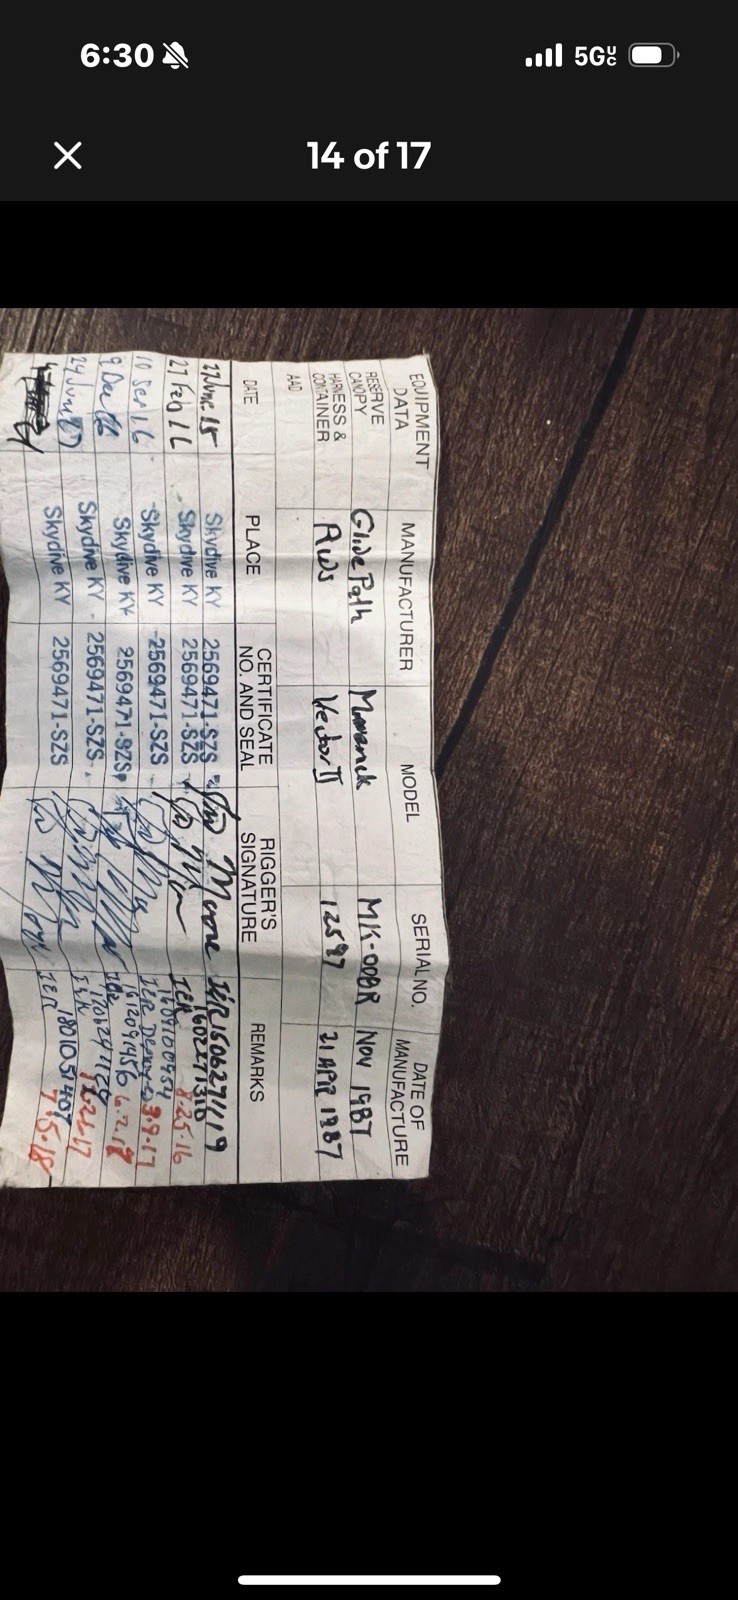 6:30
5G
14 of 17
EQUIPMENT DATA MANUFACTURER MODEL SERIAL NO. DATE OF MANUFACTURE
RESERVE CANOPY Glide Path MK-008R NOV 1987
HARNESS & CONTAINER RWS Vector II 12597 21 APR 1987
AAD
DATE PLACE CERTIFICATE NO. AND SEAL RIGGER'S SIGNATURE REMARKS
27 June 15 Skydive KY 2569471-SZS I&R 1506271119
27 Feb 16 Skydive KY 2569471-SZS I&R 1602271310 8-25-16
10 Sep 16 Skydive KY 2569471-SZS 3-9-17
9 Dec 16 Skydive KY 2569471-SZS 1612091456
Skydive KY 2569471-SZS
Skydive KY 2569471-SZS I&R 7-5-18